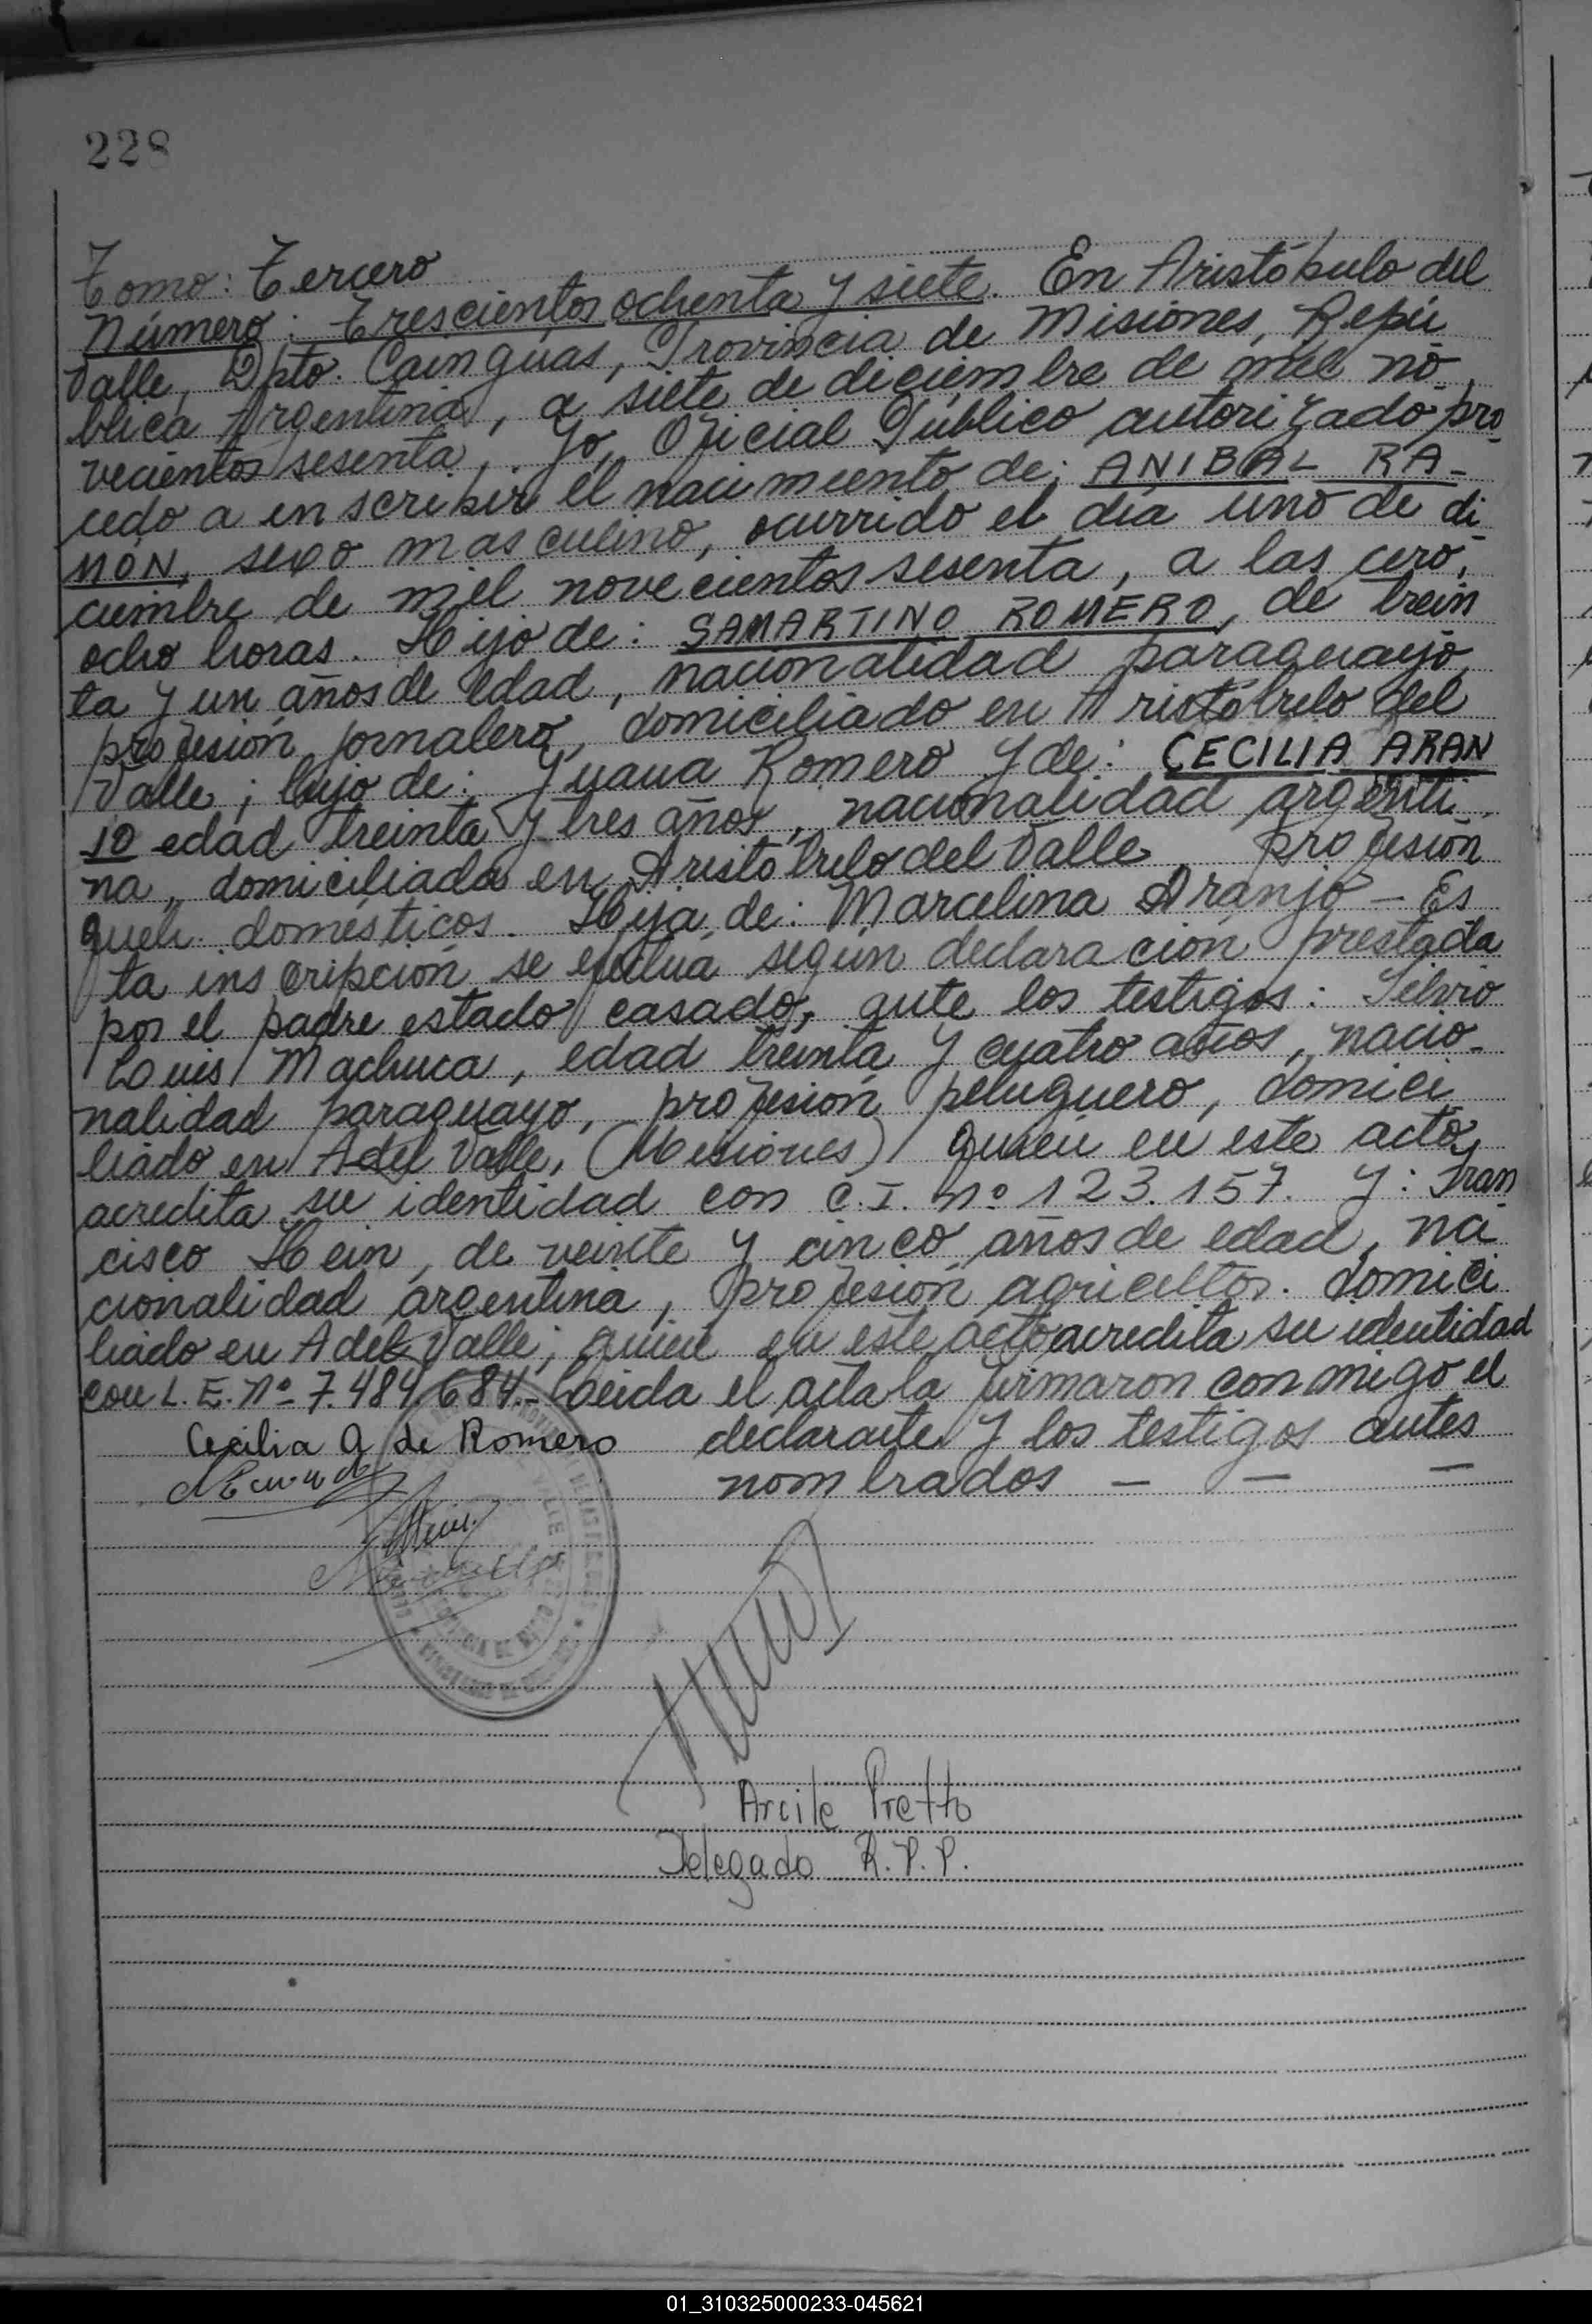 228
Tomo: Tercero
Número: Trescientos ochenta y siete. En Aristóbulo del
Valle, Dpto. Cainguas, Provincia de Misiones, Repú
blica Argentina, a siete de diciembre de mil no-
vecientos sesenta, Yo, Oficial Público autorizado pro
cedo a inscribir el nacimiento de: ANIBAL RA-
MÓN, sexo masculino, ocurrido el día uno de di
ciembre de mil novecientos sesenta, a las cero,
ocho horas. Hijo de: SAMARTINO ROMERO, de trein
ta y un años de edad, nacionalidad paraguayo,
profesión jornalero, domiciliado en Aristóbulo del
Valle; hijo de: Juana Romero y de: CECILIA ARAN
JO edad treinta y tres años, nacionalidad argenti
na, domiciliada en Aristóbulo del Valle, profesión
queh. domésticos. Hija de: Marcelina Aranjo - Es
ta inscripción se efectua según declaración prestada
por el padre estado casado, ante los testigos: Silvio
Louis Machuca, edad treinta y cuatro años, nacio-
nalidad paraguayo, profesión peluquero, domici
liado en A del Valle, (Misiones) quien en este acto
acredita su identidad con C.I. nº 123.157. Y: Fran
cisco Hein, de veinte y cinco años de edad, na
cionalidad argentina, profesión agricultor. domici
liado en A del Valle; quien en este acto acredita su identidad
con L.E. Nº 7.484.684.- Leida el acta la firmaron conmigo el
Cecilia A de Romero declarante y los testigos antes
nombrados - - -
Arcile Pretto
Delegado R.P.P.
01_310325000233-045621